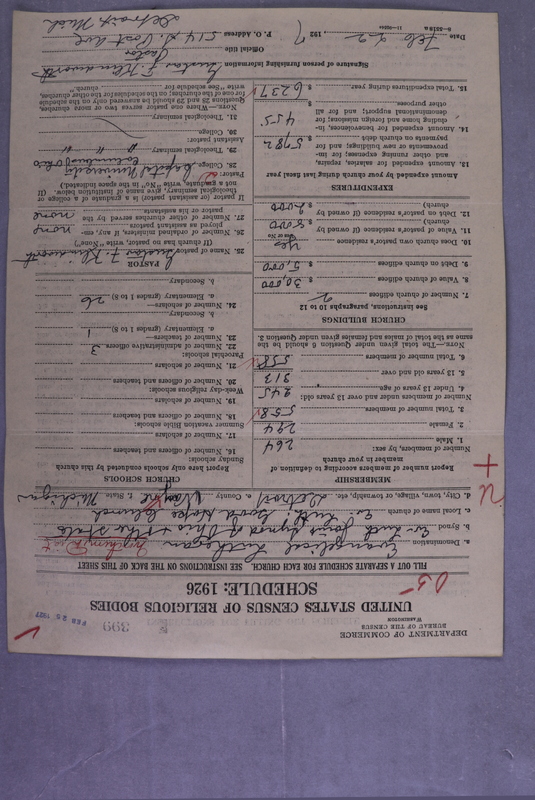 DEPARTMENT OF COMMERCE
BUREAU OF THE CENSUS
WASHINGTON
399
FEB 25 1927
UNITED STATES CENSUS OF RELIGIOUS BODIES
SCHEDULE: 1926
FILL OUT A SEPARATE SCHEDULE FOR EACH CHURCH. SEE INSTRUCTIONS ON THE BACK OF THIS SHEET
a. Denomination Evangelical Lutheran
b. Synod Ev. Luth. Joint Synod of Ohio & other States
c. Local name of church Ev. Luth. Good Hope Church
d. City, town, village, or township, etc. Detroit e. County Wayne f. State Michigan
MEMBERSHIP
Report number of members according to definition of member in your church
Number of members, by sex:
1. Male 264
2. Female 294
3. Total number of members 558
Number of members under and over 13 years old:
4. Under 13 years of age 245
5. 13 years old and over 313
6. Total number of members 558
NOTE.—The total given under Question 6 should be the same as the total of males and females given under Question 3.
CHURCH BUILDINGS
See instructions, paragraphs 10 to 12
7. Number of church edifices 2
8. Value of church edifices $ 30,000
9. Debt on church edifices $ 5,000
10. Does church own pastor's residence yes
11. Value of pastor's residence (if owned by church) $ 8000
12. Debt on pastor's residence (if owned by church) $ 2000
EXPENDITURES
Amount expended by your church during last year
13. Amount expended for salaries, repairs, and other running expenses; for improvements or new building; and for payments on church debt $ 5782
14. Amount expended for benevolences, including home and foreign missions; for denominational support; and for all other purposes $ 455
15. Total expenditures during year $ 6237
CHURCH SCHOOLS
Report here only schools conducted by this church
Sunday schools:
16. Number of officers and teachers
17. Number of scholars
Summer vacation Bible schools:
18. Number of officers and teachers
19. Number of scholars
Week-day religious schools:
20. Number of officers and teachers
21. Number of scholars
Parochial schools:
22. Number of administrative officers 3
23. Number of teachers—
a. Elementary (grades 1 to 8) 1
b. Secondary
24. Number of scholars—
a. Elementary (grades 1 to 8) 26
b. Secondary
PASTOR
25. Name of pastor
(If church has no pastor, write "None")
26. Number of ordained ministers, if any, employed as assistant pastors none
27. Number of other churches served by the pastor or his assistants none
If pastor or assistant pastor is a graduate of a college or theological seminary, give name of institution below. (If not a graduate, write "No" in the space indicated.)
Pastor:
28. College Capital University Columbus Ohio
29. Theological seminary " " "
Assistant pastor:
30. College
31. Theological seminary
NOTE.—Where one pastor serves two or more churches, Questions 28 and 29 should be answered only on the schedule for one of the churches; on the schedules for the other churches, write "See schedule for ... church."
Signature of person furnishing information
Official title Pastor
P. O. Address
Detroit Mich
Date Feb 22 1927